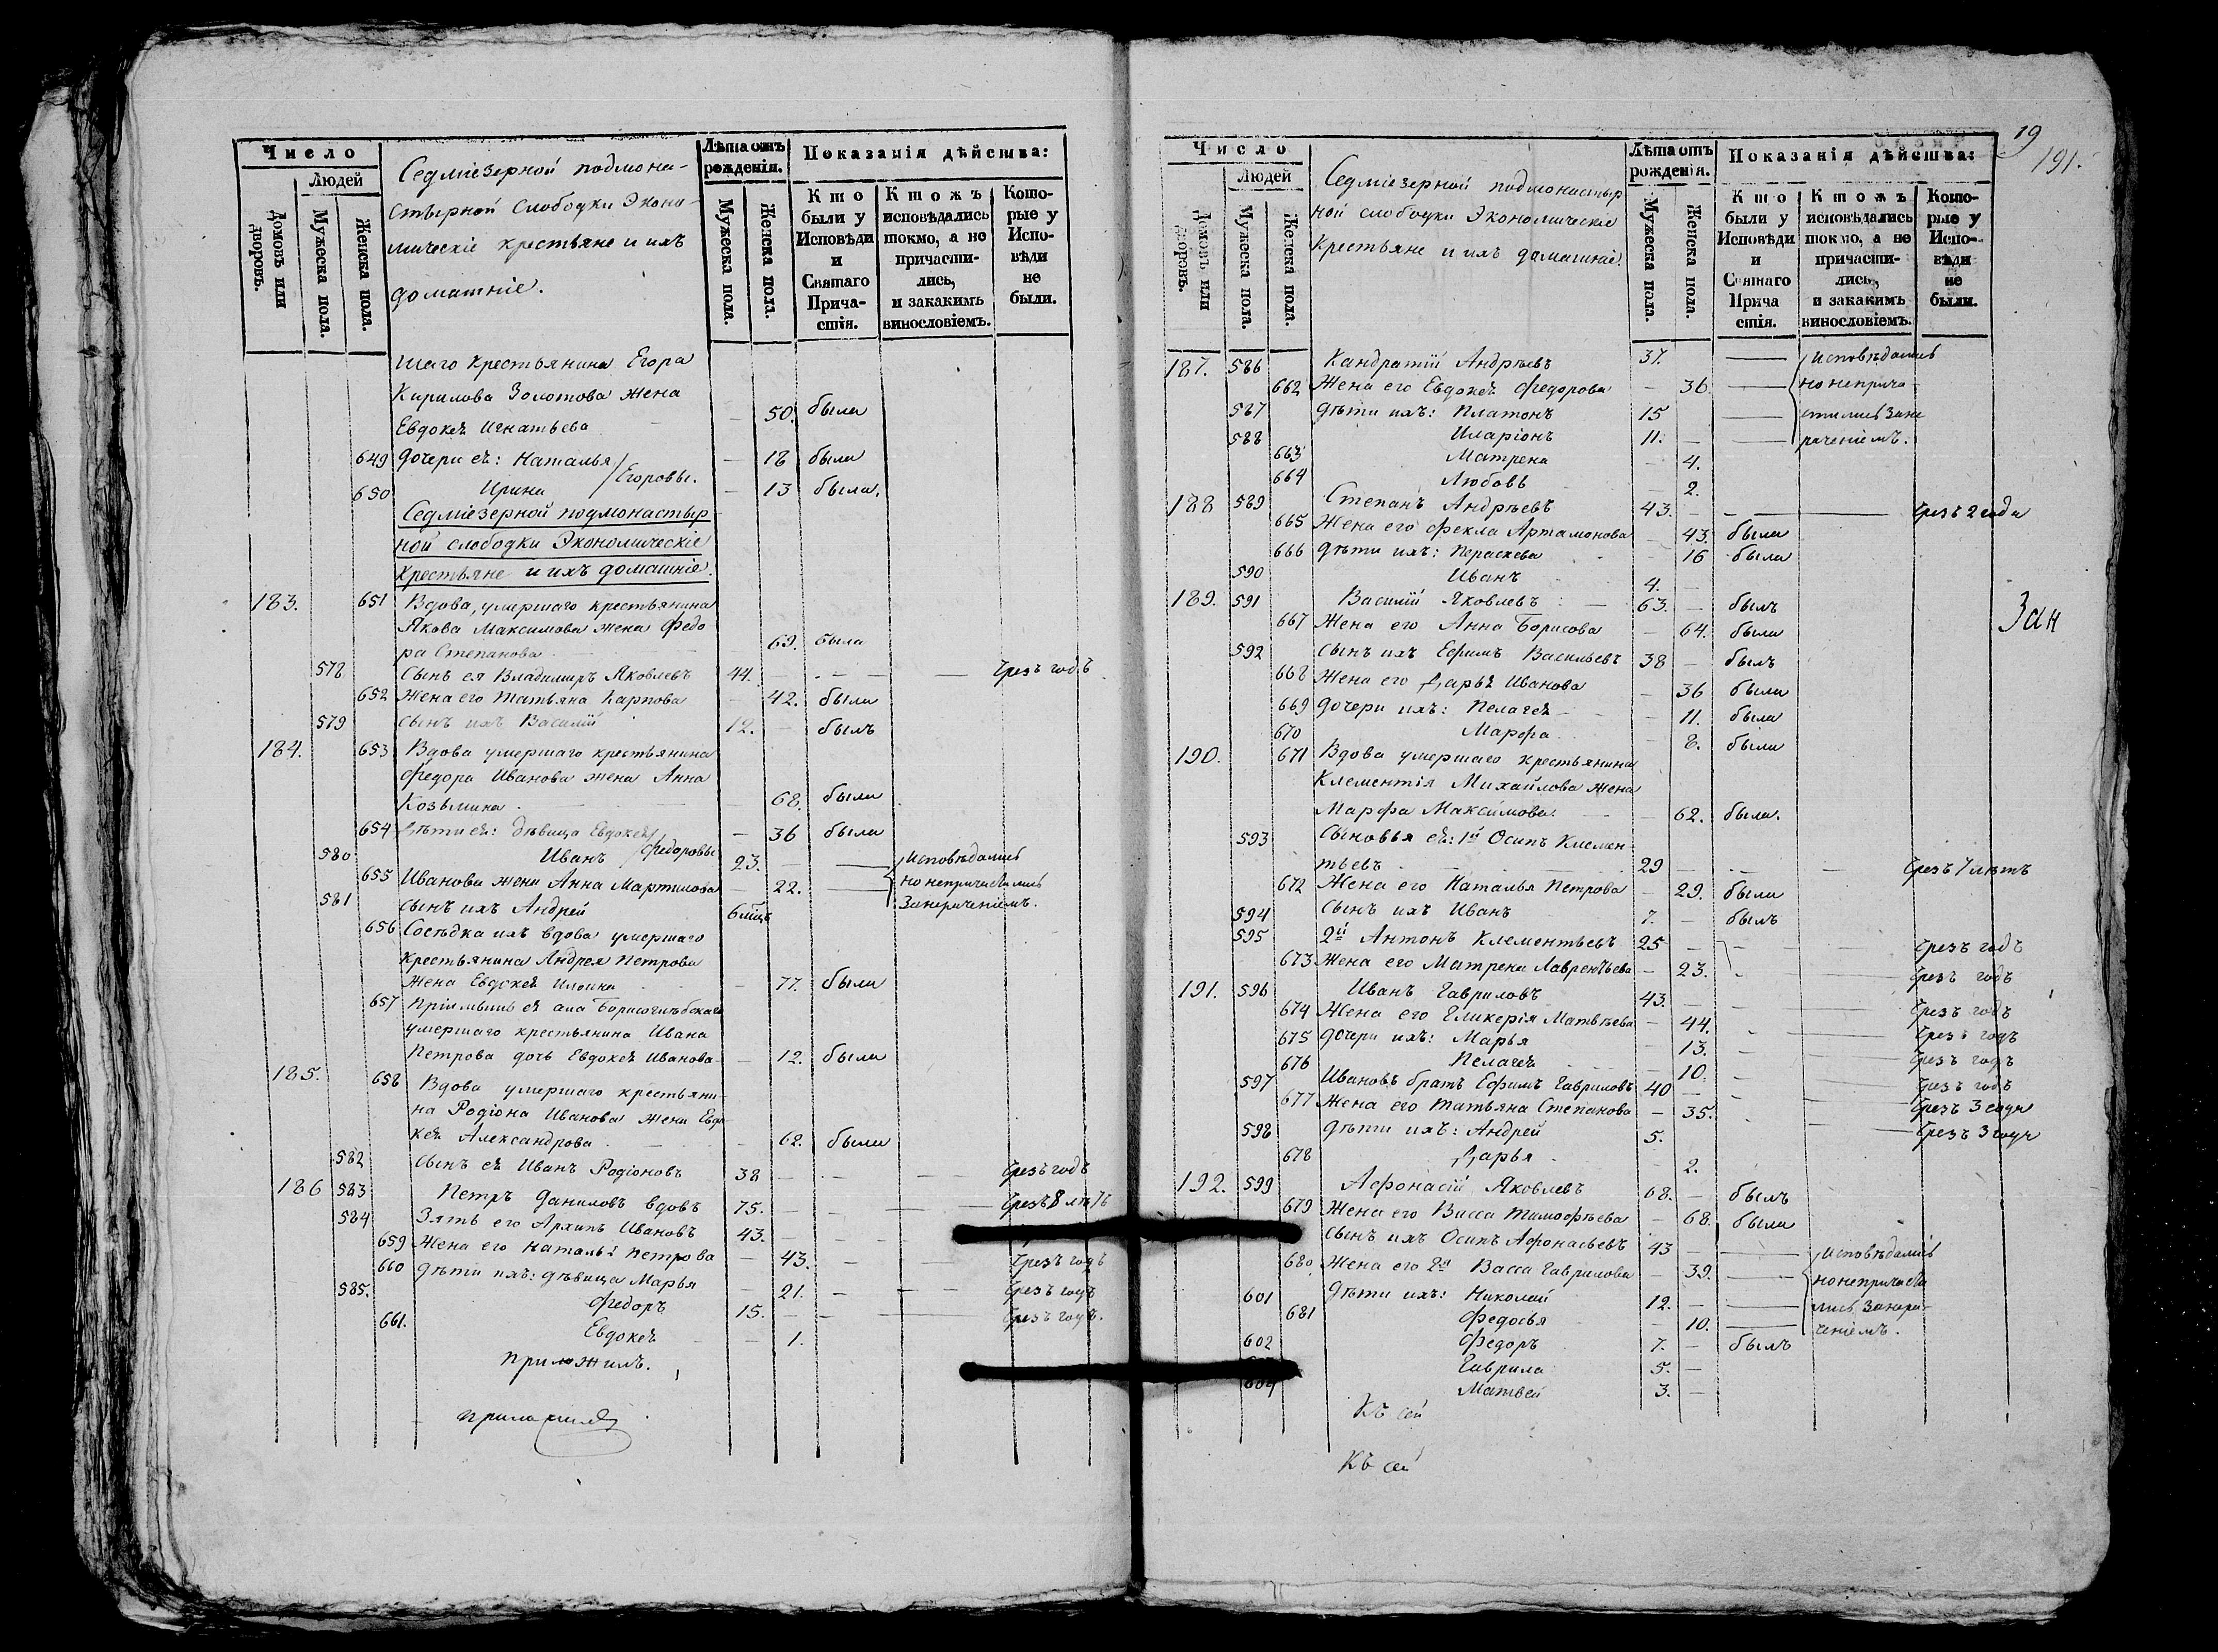 Число
Людей
Домовъ или дворовъ.
Мужеска пола.
Женска пола.
Седміезерной подмона-
стырной слободки Эконо-
мическіе крестьяне и ихъ
домашніе.
Лѣта отъ рожденія.
Мужеска пола.
Женска пола.
Показанія дѣйства:
Кто были у Исповѣди и Святаго Прича-стія.
Ктожъ исповѣдались токмо, а не причасти-лись, и закакимъ винословіемъ.
Кото-рые у Испо-вѣди не были.
шаго крестьянина Егора
Кирилова Золотова жена
Евдокея Игнатьева — 50. была
649 Дочери ея: Наталья — 18 была
Егоровы.
650 Ирина — 13 была.
Седміезерной подмонастыр
ной слободки Экономическіе
крестьяне и ихъ домашніе.
183. 651 Вдова, умершаго крестьянина
Якова Максимова жена Федо
ра Степанова 69. была
578 Сынъ ея Владимиръ Яковлевъ 44. — чрезъ годъ
652 Жена его Татьяна Карпова 42. была
579 сынъ ихъ Василій 12. былъ
184. 653 Вдова умершаго крестьянина
Федора Иванова жена Анна
Козьмина 68. была
654 Дѣти ея: дѣвица Евдокея — 36 была
Федоровы
580 Иванъ 23. — Исповѣдались
655 Иванова жена Анна Мартинова — 22. — но непричастились
581 сынъ ихъ Андрей 6 мцъ Занереченіемъ.
656 Сосѣдка ихъ вдова умершаго
крестьянина Андрея Петрова
Жена Евдокея Ильина — 77. была
657 Пріимышъ ея села Борисоглѣбскаго
умершаго крестьянина Ивана
Петрова дочь Евдокея Иванова — 12. была
185. 658 Вдова умершаго крестьяни-
на Родіона Иванова жена Евдо
кея Александрова — 62. была
582 сынъ ея Иванъ Родіоновъ 38 — чрезъ годъ
186 583 Петръ Даниловъ вдовъ 75. — чрезъ 8 лѣтъ
584 Зять его Архипъ Ивановъ 43. —
659 Жена его Наталья Петрова — 43. — чрезъ годъ
660 дѣти ихъ: дѣвица Марья — 21. — чрезъ годъ
585. Федоръ 15. — чрезъ годъ.
661. Евдокея — 1.
приложилъ.
19
191.
Число
Людей
Домовъ или дворовъ.
Мужеска пола.
Женска пола.
Седміезерной подмонастыр
ной слободки Экономическіе
Крестьяне и ихъ домашніе.
Лѣта отъ рожденія.
Мужеска пола.
Женска пола.
Показанія дѣйства:
Кто были у Исповѣди и Святаго Прича стія.
Ктожъ исповѣдались токмо, а не причасти-лись, и закакимъ винословіемъ.
Кото-рые у Испо-вѣди не были.
187. 586 Кандратій Андрѣевъ 37. — исповѣдались
662 Жена его Евдокея Федорова — 36. — но неприча
587 дѣти ихъ: Платонъ 15 — стились Зане
588 Иларіонъ 11. — реченіемъ.
663 Матрена — 4.
664 Любовь — 2.
188 589 Степанъ Андрѣевъ 43. — чрезъ 2 года
665 Жена его Фекла Артамонова — 43. была
666 дѣти ихъ: Параскева — 16 была
590 Иванъ 4. —
189. 591 Василій Яковлевъ 63. — былъ
Зан
667 Жена его Анна Борисова — 64. была
592 сынъ ихъ Ефимъ Васильевъ 38 — былъ
668 Жена его Дарья Иванова — 36 была
669 дочери ихъ: Пелагея — 11. была
670 Марфа — 8. была
190. 671 Вдова умершаго крестьянина
Клементія Михайлова жена
Марфа Максимова. — 62. была.
593 Сыновья ея: 1й Осипъ Клемен-
тьевъ 29 — чрезъ 7 лѣтъ
672 Жена его Наталья Петрова — 29. была
594 сынъ ихъ Иванъ 7. — былъ
595 2й Антонъ Клементьевъ 25 — чрезъ годъ
673 Жена его Матрена Лаврентьева — 23. — чрезъ годъ
191. 596 Иванъ Гавриловъ 43. — чрезъ годъ
674 Жена его Гликерія Матвѣева — 44. — чрезъ годъ
675 дочери ихъ: Марья — 13. — чрезъ годъ
676 Пелагея — 10. — чрезъ годъ
597 Ивановъ братъ Ефимъ Гавриловъ 40 — чрезъ 3 года
677 Жена его Татьяна Степанова — 35. — чрезъ 3 года
598 дѣти ихъ: Андрей 5.
678 Дарья — 2.
192. 599 Афонасій Яковлевъ 68. — былъ
679 Жена его Васса Тимофѣева — 68. была
сынъ ихъ Осипъ Афонасьевъ 43 — исповѣдались
680. Жена его 2я Васса Гаврилова — 39. — но непричасти
601 дѣти ихъ: Николай 12. — лись, Занере-
681 Федосья — 10. — ченіемъ.
602 Федоръ 7. — былъ
Гаврила 5. —
604 Матвей 3. —
Къ сей
Къ сей